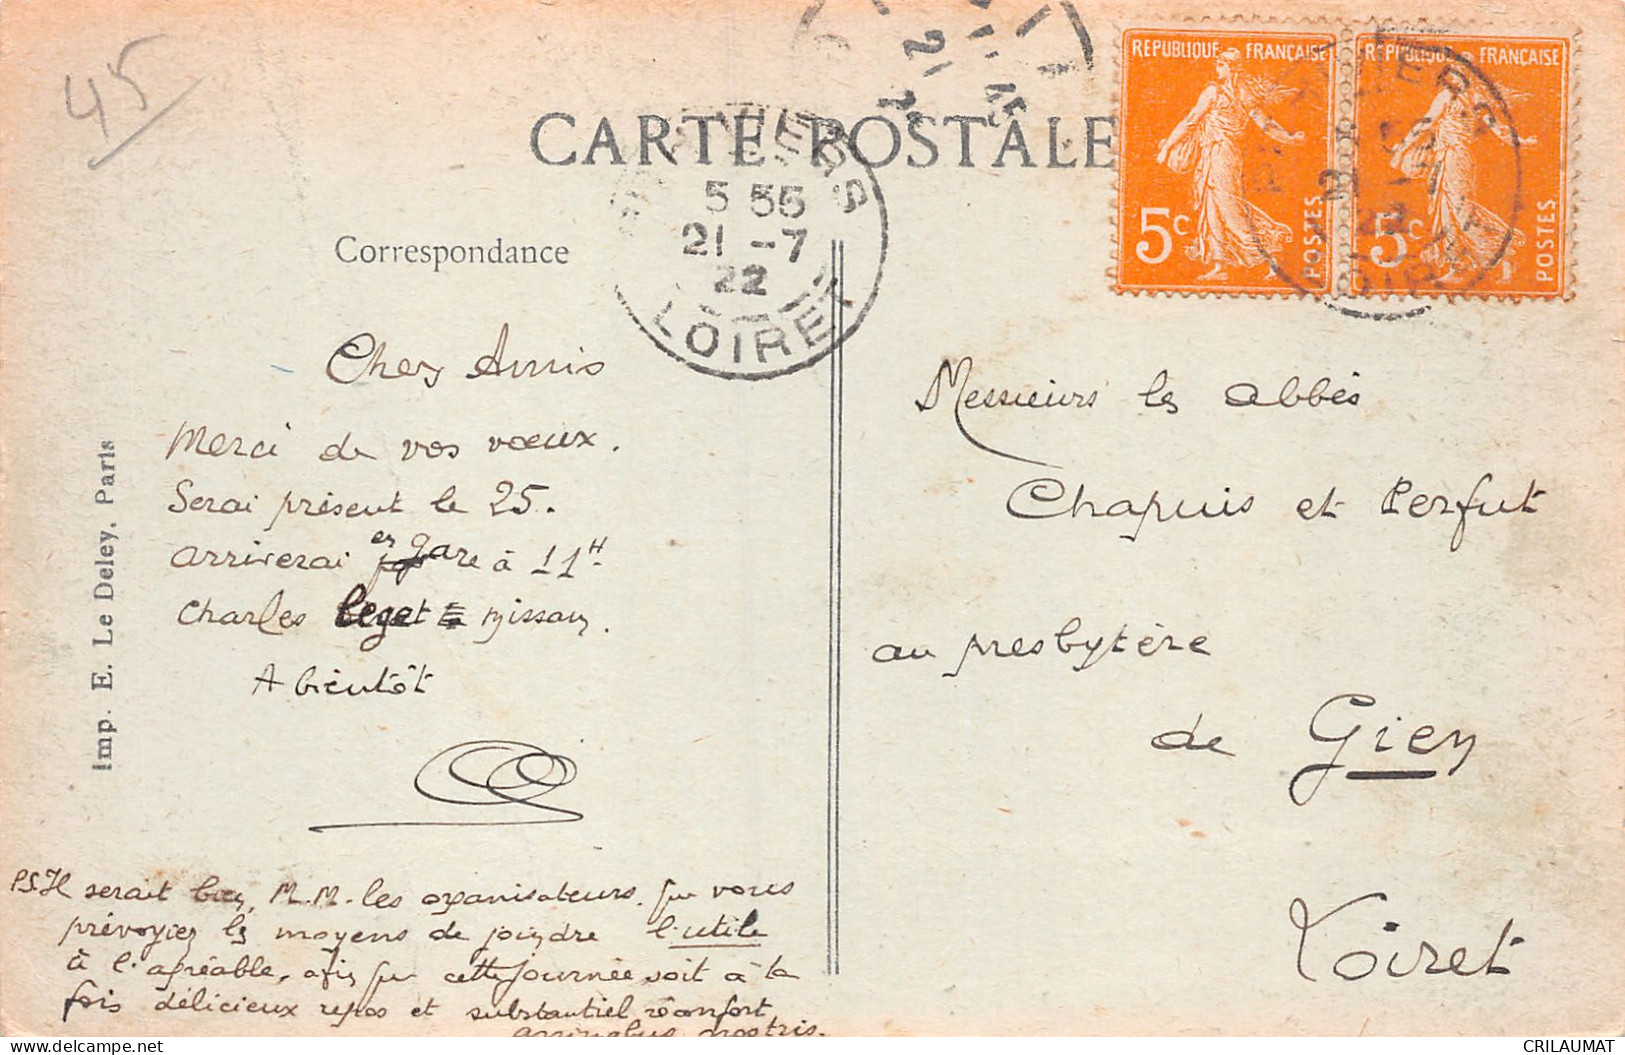 45
CARTE POSTALE
RÉPUBLIQUE FRANÇAISE
5c
POSTES
RÉPUBLIQUE FRANÇAISE
5c
POSTES
5 35
21 - 7
22
LOIRET
Correspondance
Chers Amis
Merci de vos vœux.
Serai présent le 25.
arriverai en gare à 11H
Charles
A bientôt
P.S. Il serait bien, M.M. les organisateurs, que vous
prévoyiez les moyens de joindre l'utile
à l'agréable, afin que cette journée soit à la
fois délicieux repos et substantiel réconfort
animabus nostris.
Messieurs les abbés
Chapuis et Perfut
au presbytère
de Gien
Loiret
Imp. E. Le Deley, Paris
www.delcampe.net
CRILAUMAT